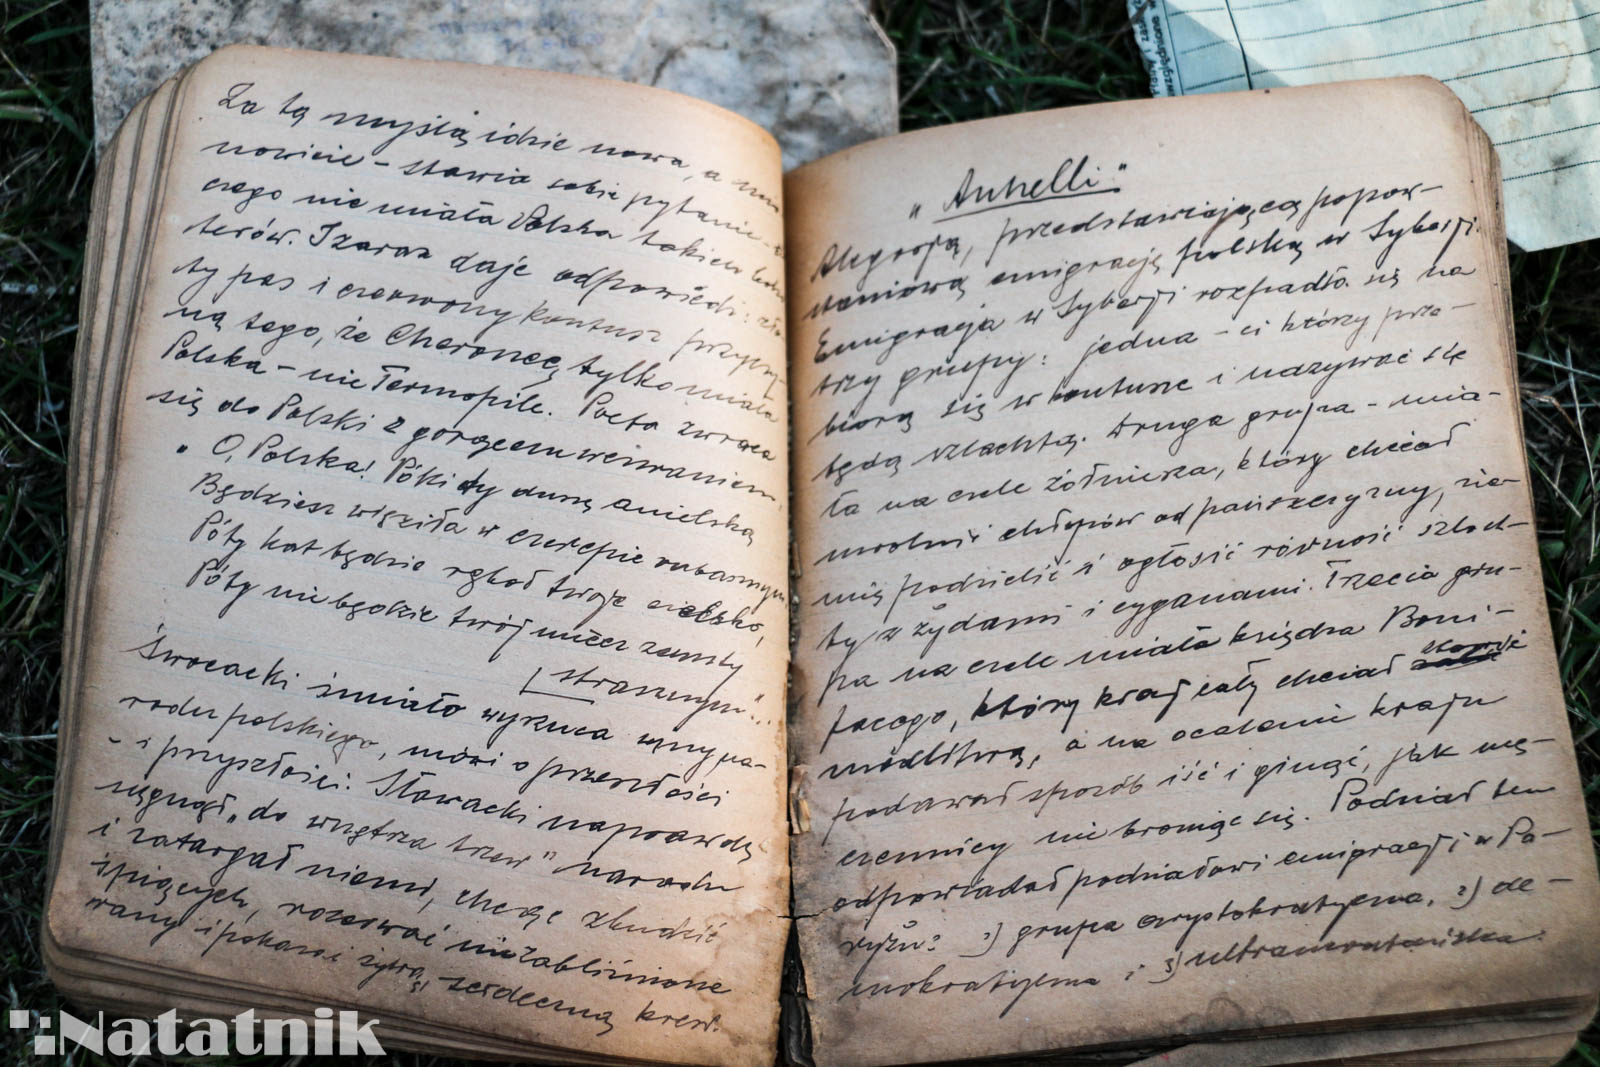 Za tą myślą idzie nowa, a mia-
nowicie – stawia sobie pytanie –
czego nie miała Polska takich boha-
terów. I zaraz daje odpowiedź: zło-
ty pas i czerwony kontusz przyczy-
ną tego, że Cheroneę tylko miała
Polska – nie Termopile. Poeta zwraca
się do Polski z gorącem wezwaniem
„O, Polska! Póki ty duszę anielską
Będziesz więziła w czerepie rubasznym,
Póty kat będzie rąbał twoje cielsko,
Póty nie będzie twój miecz zemsty
straszny"...
Słowacki śmiało wyrzuca winy na-
rodu polskiego, mówi o przeszłości
– i przyszłości. Słowacki naprawdę
sięgnął „do wnętrza trzew" narodu
i zatargał niemi, chcąc zbudzić
śpiących, rozerwać niezabliźnione
rany i pokazać żywą, serdeczną krew.
„Anhelli."
Alegorją, przedstawiającą popow-
staniową emigrację polską w Syberji.
Emigracja w Syberji rozpadła się na
trzy grupy: jedna – ci którzy prze-
biorą się w kontusze i nazywać się
będą szlachtą. Druga grupa – mia-
ła na czele żołnierza, który chciał
uwolnić chłopów od pańszczyzny, zie-
mię podzielić i ogłosić równość szlach-
ty z żydami i cyganami. Trzecia gru-
pa na czele miała księdza Boni-
facego, który kraj cały chciał zbawić
modlitwą, a na ocalenie kraju
podawał sposób iść i ginąć, jak mę-
czennicy nie broniąc się. Podział ten
odpowiadał podziałowi emigracji w Pa-
ryżu: 1) grupa arystokratyczna, 2) de-
mokratyczna i 3) ultramontańska.
Natatnik